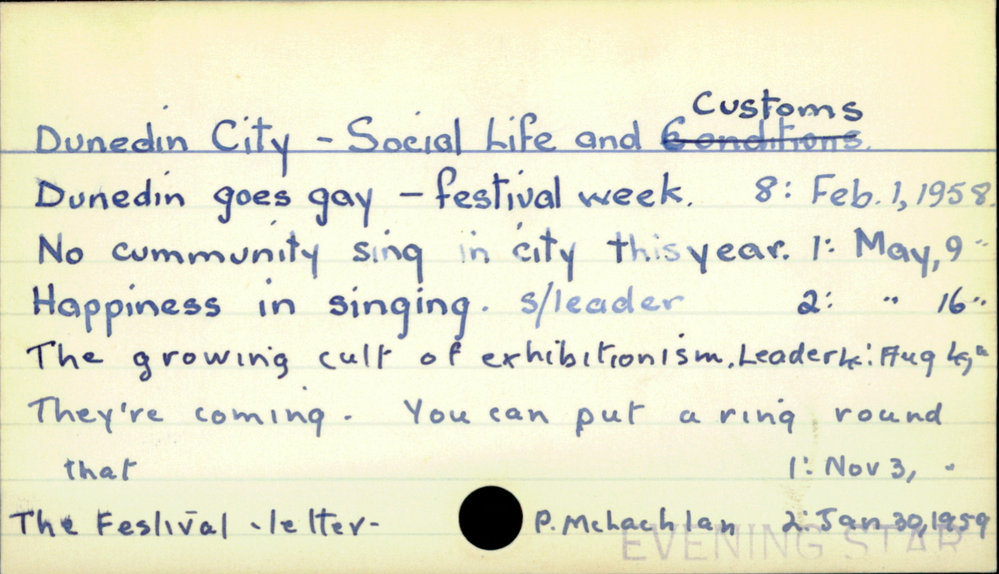 Customs
Dunedin City - Social Life and Conditions.
Dunedin goes gay - festival week. 8: Feb. 1, 1958.
No cummunity sing in city this year. 1: May, 9 "
Happiness in singing. s/leader 2: " 16 "
The growing cult of exhibitionism. Leader 4: Aug 4, "
They're coming. You can put a ring round
that 1: Nov 3, "
The Festival - letter - P. McLachlan 2: Jan 30, 1959
EVENING STAR